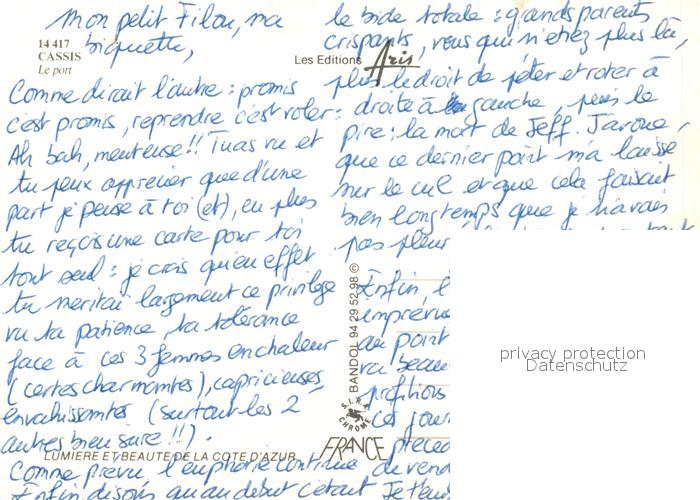 Mon petit Filou, ma
biquette,
14 417
CASSIS
Le port
Comme dirait l'autre : promis
c'est promis, reprendre c'est voler :
Ah bah, menteuse !! Tu as vu et
tu peux apprécier que d'une
part je pense à toi (et), en plus
tu reçois une carte pour toi
tout seul : je crois qu'en effet
tu méritai largement ce privilège
vu ta patience, ta tolérance
face à ces 3 femmes en chaleur
(certes charmantes), capricieuses,
envahissantes (surtout les 2
autres bien sûre !!).
LUMIERE ET BEAUTE DE LA COTE D'AZUR
Comme prévu l'euphorie continue
Enfin disons qu'au début c'était
Les Editions Aris
le bide totale : grands parents
crispants, vous qui n'étiez plus là,
plus le droit de péter et roter à
droite à gauche, puis le
pire : la mort de Jeff. J'avoue,
que ce dernier point m'a laissé
sur le cul et que cela faisait
bien longtemps que je n'avais
pas pleur
Enfin, l
imprévu
au point
va beau
profitions
ces jour
précéd
de vend
Je t'em
BANDOL 94 29 52 98 ©
S.I.R.A. CHROME
FRANCE
privacy protection
Datenschutz